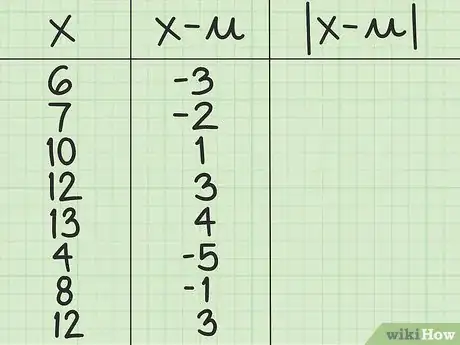 x x-μ |x-μ|
6 -3
7 -2
10 1
12 3
13 4
4 -5
8 -1
12 3
wikiHow